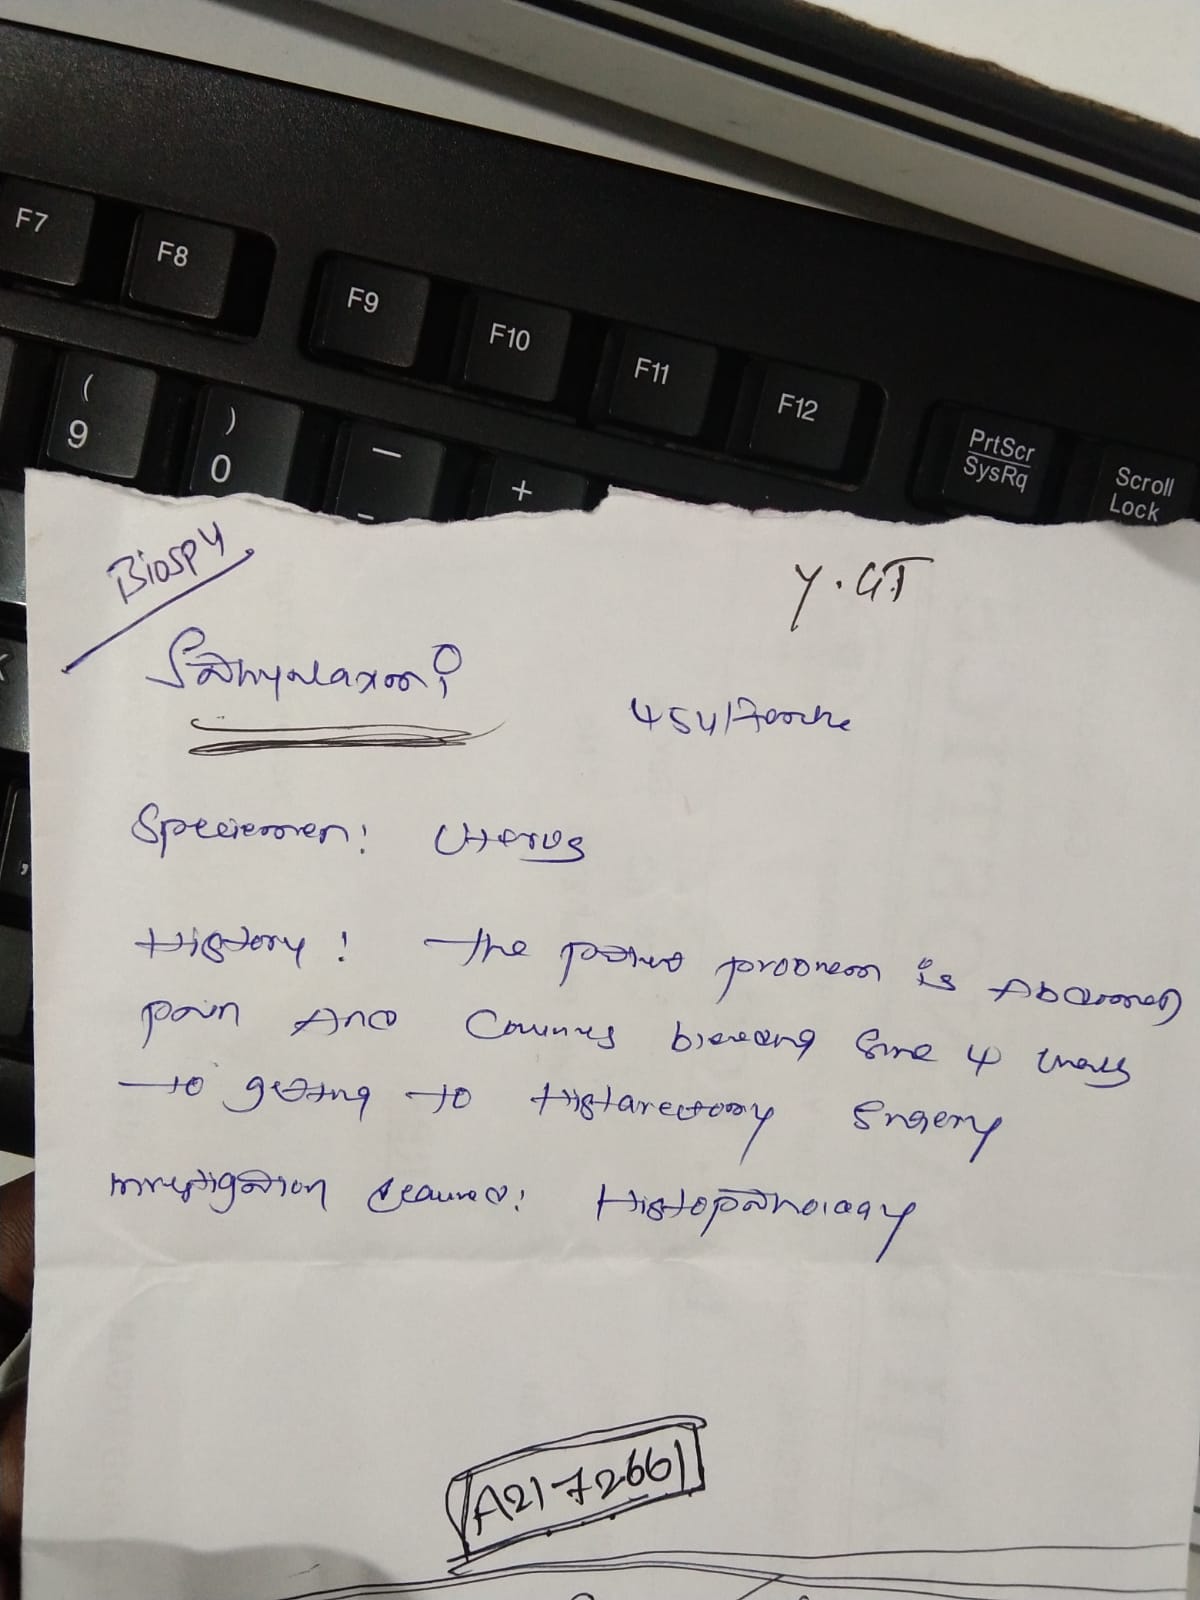 F7 F8 F9 F10 F11 F12 PrtScr SysRq Scroll Lock
( 9 ) 0 — - +
Biospy
Y. GT
Sathyalaxmi
45y/Female
Specimen: Uterus
History: The patient problem is Abdomen
pain And bleeding Since 4 years
to getting to
Investigation Required: Histopathology
A2172661